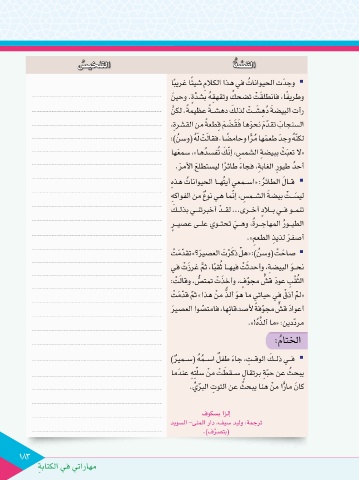 القصّةُ
التلخيصُ
• وجدَت الحيواناتُ في هذا الكلامِ شيئًا غريبًا
وطريفًا، فانطلقَتْ تضحكُ وتقهقِهُ بشدَّةٍ. وحينَ
رأت البيضةَ دُهشَـتْ لذلكَ دهشـةً عظيمةً، لكنَّ
السنجابَ تقدَّمَ نحوَها فَقَضَمَ قطعةً من القشرةِ،
لكنَّهُ وجدَ طعمَها مُرًّا وحامضًا. فقالَتْ لهُ (وسنُ):
«لا تعبَثْ ببيضةِ الشمسِ، إنَّكَ تُفسدُها». سمعَها
أحدُ طيورِ الغابةِ، فجاءَ طائرًا ليستطلعَ الأمرَ.
• قـالَ الطائرُ: «اسـمعي أيتُهـا الحيواناتُ هذهِ
ليسَـتْ بيضةَ الشـمسِ، إنَّمـا هي نوعٌ من الفواكهِ
تنمـو فـي بـلادٍ أخـرى... لقـدْ أخبرتنـي بذلـكَ
الطيـورُ المهاجـرةُ، وهـيَ تحتـوي علـى عصيـرٍ
أصفرَ لذيذِ الطعمِ».
• صاحَتْ (وسنُ): «هلْ ذكَرْتَ العصيرَ؟» تقدّمَتْ
نحـوَ البيضةِ، وأحدثَتْ فيهـا ثُقبًا، ثمَّ غرزَتْ في
الثُّقبِ عودَ قشٍّ مجوَّفٍ، وأخذَتْ تمتصُّ، وقالَتْ:
«لـمْ أذقْ في حياتي ما هوَ ألذُّ منْ هذا» ثمَّ قدَّمَتْ
أعوادَ قشٍّ مجوَّفةً لأصدقائِها، فامتصُّوا العصيرَ
مردِّدين: «ما ألذَّهُ!».
الختامُ:
• فـي ذلـكَ الوقـتِ، جاءَ طفلٌ اسـمُهُ (سـميرٌ)
يبحثُ عن حبّةِ برتقالٍ سـقطَتْ منْ سلَّتِهِ عندَما
كانَ مارًّا منْ هنا يبحثُ عن التوتِ البرِّيِّ.
إلزا بسكوف
ترجمة: وليد سيف، دار المنى- السويد
(بتصرّف).
١٨٣
مهاراتي في الكتابةِ